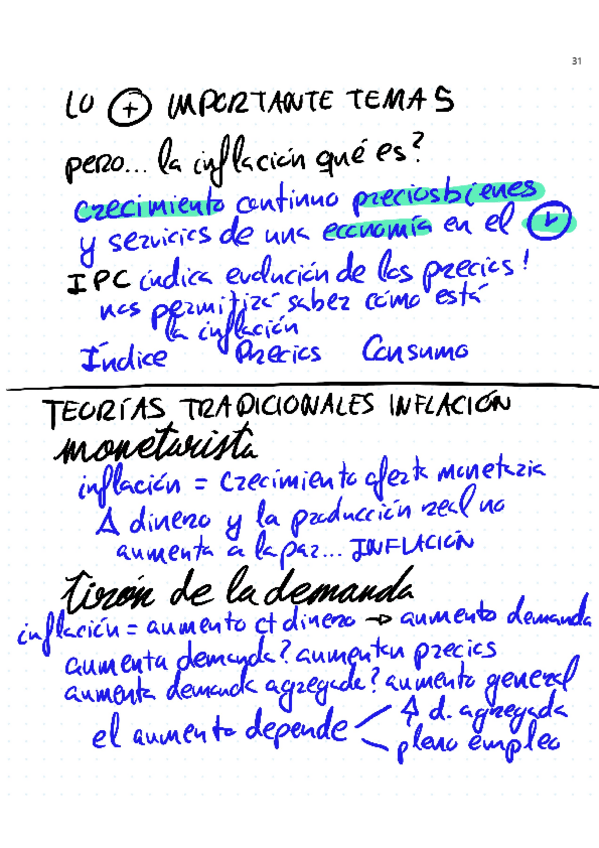 31
LO + IMPORTANTE TEMAS
pero... la inflación qué es?
crecimiento continuo precios bienes
y servicios de una economía en el
IPC indica evolución de los precios!
nos permitirá saber cómo está
la inflación
Índice Precios Consumo
TEORÍAS TRADICIONALES INFLACIÓN
monetarista
inflación = crecimiento oferta monetaria
Δ dinero y la producción real no
aumenta a la paz... INFLACIÓN
tirón de la demanda
inflación = aumento ct dinero → aumento demanda
aumenta demanda? aumentan precios
aumenta demanda agregada? aumento general
el aumento depende
Δ d. agregada
pleno empleo